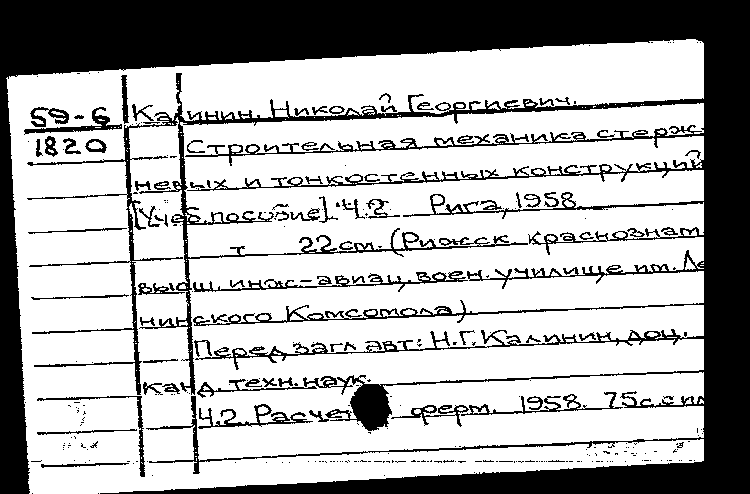 59-6 Калинин, Николай Георгиевич.
1820 Строительная механика стерж-
невых и тонкостенных конструкций
[Учеб. пособие]. Ч.2 Рига, 1958.
т 22см. (Рижск. краснознам
высш. инж-авиац. воен. училище им. Ле
нинского Комсомола).
Перед загл авт: Н.Г. Калинин, доц.
канд. техн. наук.
Ч.2. Расчет ферм. 1958. 75с. с ил